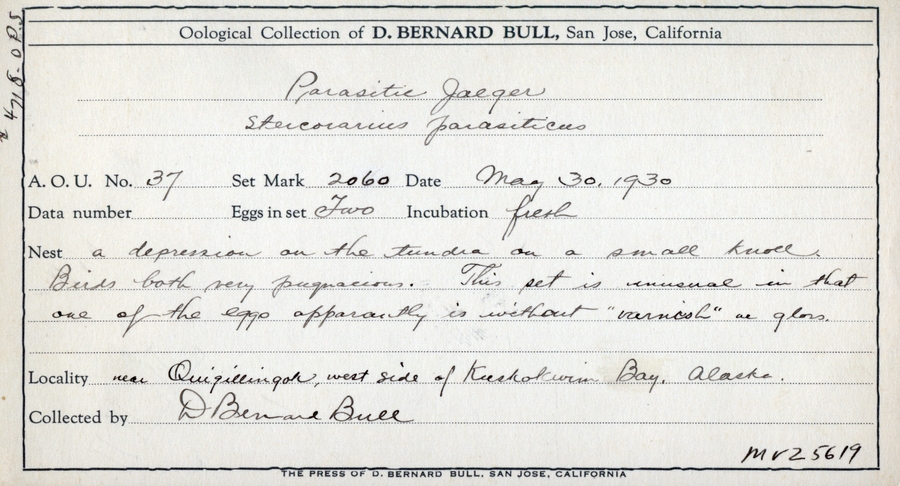 Oological Collection of D. BERNARD BULL, San Jose, California
Parasitic Jaeger
Stercorarius parasiticus
A. O. U. No. 37 Set Mark 2060 Date May 30, 1930
Data number Eggs in set Two Incubation fresh
Nest a depression on the tundra on a small knoll.
Birds both very pugnacious. This set is unusual in that
one of the eggs apparantly is without "varnish" or gloss.
Locality near Quigillingok, west side of Kuskokwim Bay, Alaska.
Collected by D Bernard Bull
MVZ 5619
THE PRESS OF D. BERNARD BULL, SAN JOSE, CALIFORNIA
4718-OPS